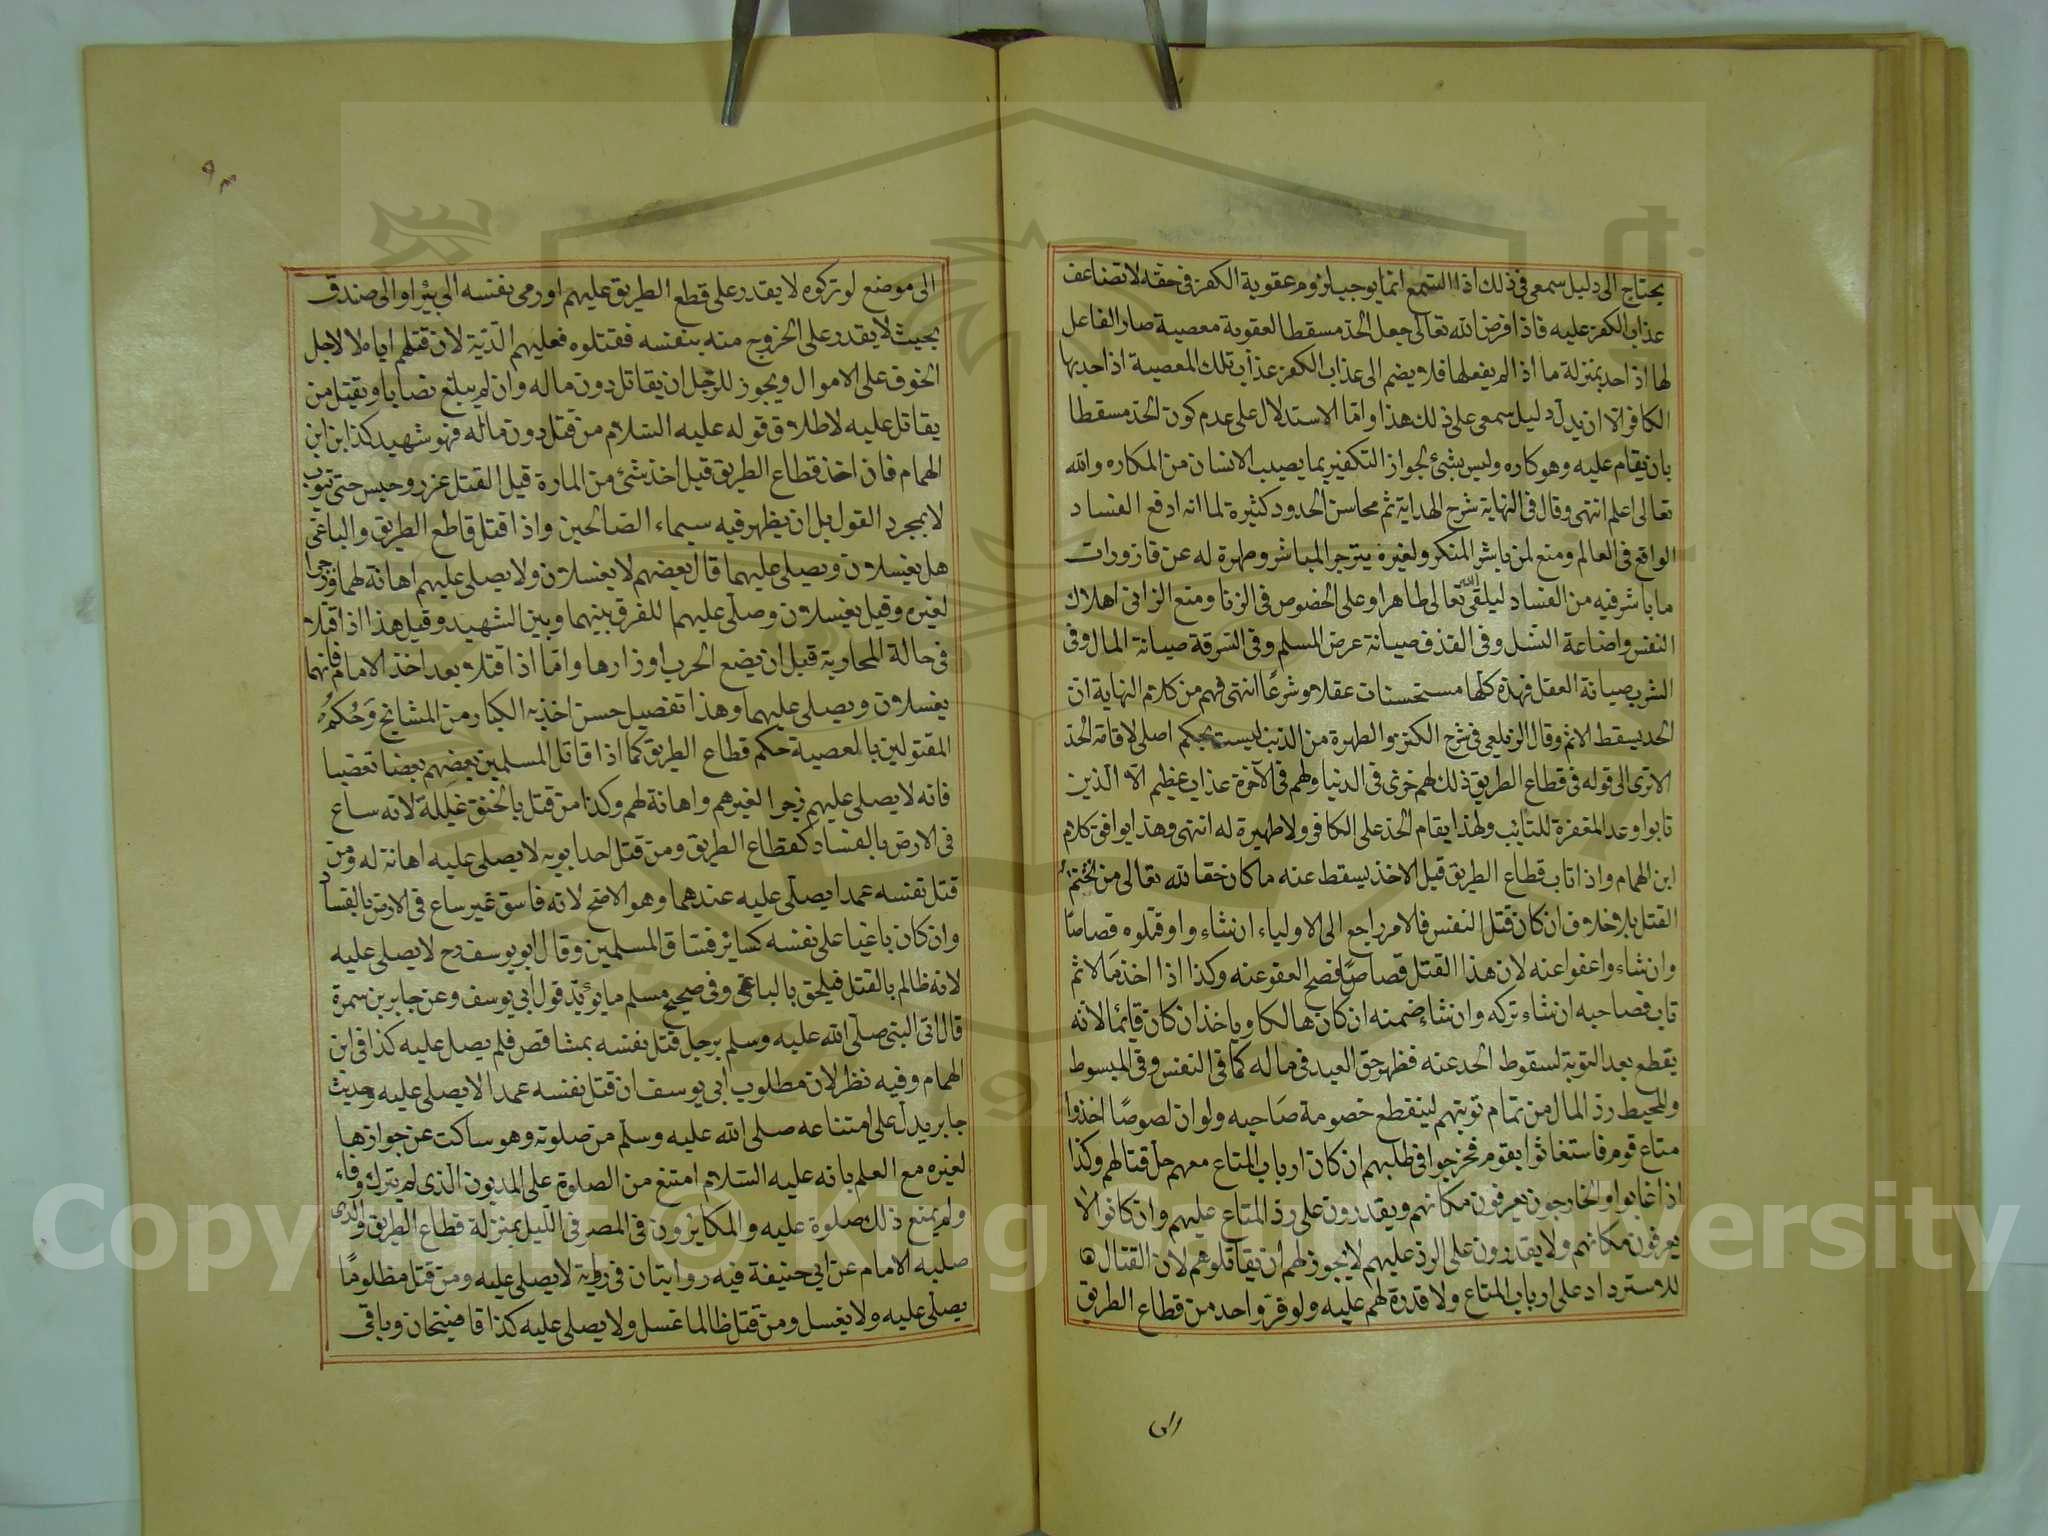 يحتاج الى دليل سمعى فى ذلك اذا السمع انما يوجب لزوم عقوبة الكفر فى حقه لا تضاعف
عذاب الكفر عليه فاذا فرض الله تعالى جعل الحد مسقطا لعقوبة معصية صار الفاعل
لها اذا حد بمنزلة ما اذا لم يفعلها فلا يضم الى عذاب الكفر عذاب تلك المعصية اذا حد بها
الكافر الا ان يدل دليل سمعى على ذلك هذا واما الاستدلال على عدم كون الحد مسقطا
بان يقام عليه وهو كاره وليس بشئ لجواز التكفير بما يصيب الانسان من المكاره والله
تعالى اعلم انتهى وقال فى النهاية شرح الهداية ثم محاسن الحدود كثيرة لما انه ادفع الفساد
الواقع فى العالم ومنع لمن باشر المنكر ولغيره يتزجر المباشر وطهرة له عن قازورات
ما باشر فيه من الفساد ليلقى الله تعالى طاهرا وعلى الخصوص فى الزنا ومنع الزانى اهلاك
النفس واضاعة النسل وفى القذف صيانة عرض المسلم وفى السرقة صيانة المال وفى
الشرب صيانة العقل فهذه كلها مستحسنات عقلا وشرعا انتهى فهم من كلام النهاية ان
الحد يسقط الاثم وقال الزيلعى فى شرح الكنز والطهرة من الذنب ليست بحكم اصلى لاقامة الحد
الا ترى الى قوله فى قطاع الطريق ذلك لهم خزى فى الدنيا ولهم فى الآخرة عذاب عظيم الا الذين
تابوا وعد المغفرة للتائب ولهذا يقام الحد على الكافر ولا طهيرة له انتهى وهذا يوافق كلام
ابن الهمام واذا تاب قطاع الطريق قبل الاخذ يسقط عنه ما كان حقا لله تعالى من تحتم
القتل بلا خلاف ان كان قتل النفس فالامر راجع الى الاولياء ان شاء وا وقتلوه قصاصا
وان شاء وا عفوا عنه لان هذا القتل قصاص فصح العفو عنه وكذا اذا اخذ مالا ثم
تاب فصاحبه ان شاء تركه وان شاء ضمنه ان كان هالكا وياخذ ان كان قائما لانه
يقطع بعد التوبة لسقوط الحد عنه فظهر حق العبد فى ماله كما فى النفس وفى المبسوط
والمحيط رد المال من تمام توبتهم لينقطع خصومة صاحبه ولو ان لصوصا اخذوا
متاع قوم فاستغاثوا بقوم فخرجوا فى طلبهم ان كان ارباب المتاع معهم حل قتالهم وكذا
اذا غابوا والخارجون يعرفون مكانهم ويقدرون على رد المتاع عليهم وان كانوا لا
يعرفون مكانهم ولا يقدرون على الرد عليهم لا يجوز لهم ان يقاتلوهم لان القتال
للاسترداد على ارباب المتاع ولا قدرة لهم عليه ولو فر واحد من قطاع الطريق
الى
٩٣
الى موضع لو تركوه لا يقدر على قطع الطريق عليهم او رمى بنفسه الى بئر او الى صندق
بحيث لا يقدر على الخروج منه بنفسه فقتلوه فعليهم الدية لان قتلهم اياه لا لاجل
الخوف على الاموال ويجوز للرجل ان يقاتل دون ماله وان لم يبلغ نصابا ويقتل من
يقاتل عليه لاطلاق قوله عليه السلام من قتل دون ماله فهو شهيد كذا ابن ابن
الهمام فان اخذ قطاع الطريق قبل اخذ شئ من المارة قبل القتل عزر وحبس حتى يتوب
لا بمجرد القول بل ان يظهر فيه سيماء الصالحين واذا قتل قاطع الطريق والباغى
هل يغسلان ويصلى عليهما قال بعضهم لا يغسلان ولا يصلى عليهم اهانة لهما وزجرا
لغيره وقيل يغسلان وصلى عليهما للفرق بينهما وبين الشهيد وقيل هذا اذا قتلا
فى حالة المحاربة قبل ان يضع الحرب اوزارها واما اذا قتلا بعد اخذ الامام فانهما
يغسلان ويصلى عليهما وهذا تفصيل حسن اخذ به الكبار من المشائخ وحكم
المقتولين بالعصبية حكم قطاع الطريق كما اذا قاتل المسلمين بعضهم بعضا تعصبا
فانه لا يصلى عليهم زجرا لغيرهم واهانة لهم وكذا من قتل بالخنق غيلة لانه ساع
فى الارض بالفساد كقطاع الطريق ومن قتل احد ابويه لا يصلى عليه اهانة له ومن
قتل نفسه عمدا يصلى عليه عندهما وهو الاصح لانه فاسق غير ساع فى الارض بالفساد
وان كان باغيا على نفسه كسائر فساق المسلمين وقال ابو يوسف رح لا يصلى عليه
لانه ظالم بالقتل فيلحق بالباغى وفى صحيح مسلم ما يؤيد قول ابى يوسف وعن جابر بن سمرة
قال اتى النبى صلى الله عليه وسلم برجل قتل نفسه بمشاقص فلم يصل عليه كذا فى ابن
الهمام وفيه نظر لان مطلوب ابى يوسف ان قتل نفسه عمدا لا يصلى عليه وحديث
جابر يدل على امتناعه صلى الله عليه وسلم من صلوته وهو ساكت عن جوازها
لغيره مع العلم بانه عليه السلام امتنع من الصلوة على المديون الذى لم يترك وفاء
ولم يمنع ذلك صلوة عليه والمكابرون فى المصر فى الليل بمنزلة قطاع الطريق والذى
صلبه الامام عن ابى حنيفة فيه روايتان فى رواية لا يصلى عليه ومن قتل مظلوما
يصلى عليه ولا يغسل ومن قتل ظالما غسل ولا يصلى عليه كذا قاضيخان وباقى
Copyright © King Saud University